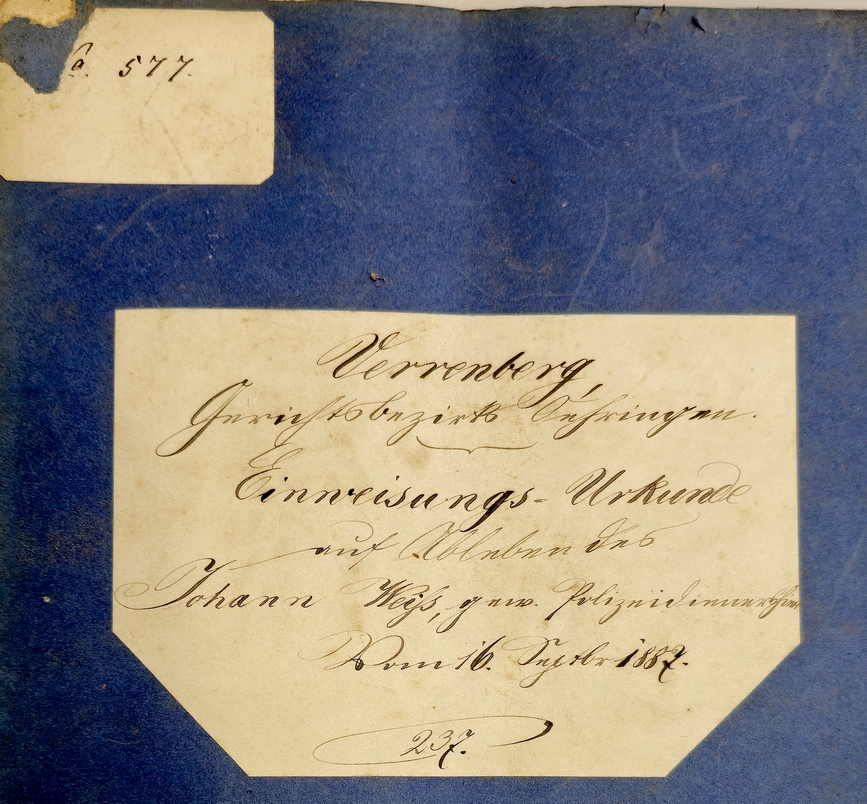 577.
Verrenberg,
Gerichtsbezirks Öhringen.
Einweisungs-Urkunde
auf Ableben des
Johann Weiß, gew. Polizeidieners
Vom 16. Septbr 1887.
237.